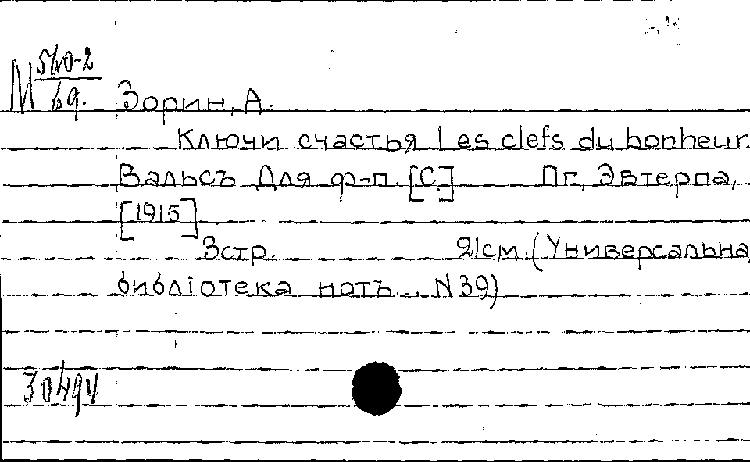 М 540-2
69. Зорин, А.
Ключи счастья Les clefs du bonheur.
Вальсъ Для ф-п. [С.] Пг, Эвтерпа,
[1915]
3стр. 21см. (Универсальна
библіотека нотъ... N39)
30494